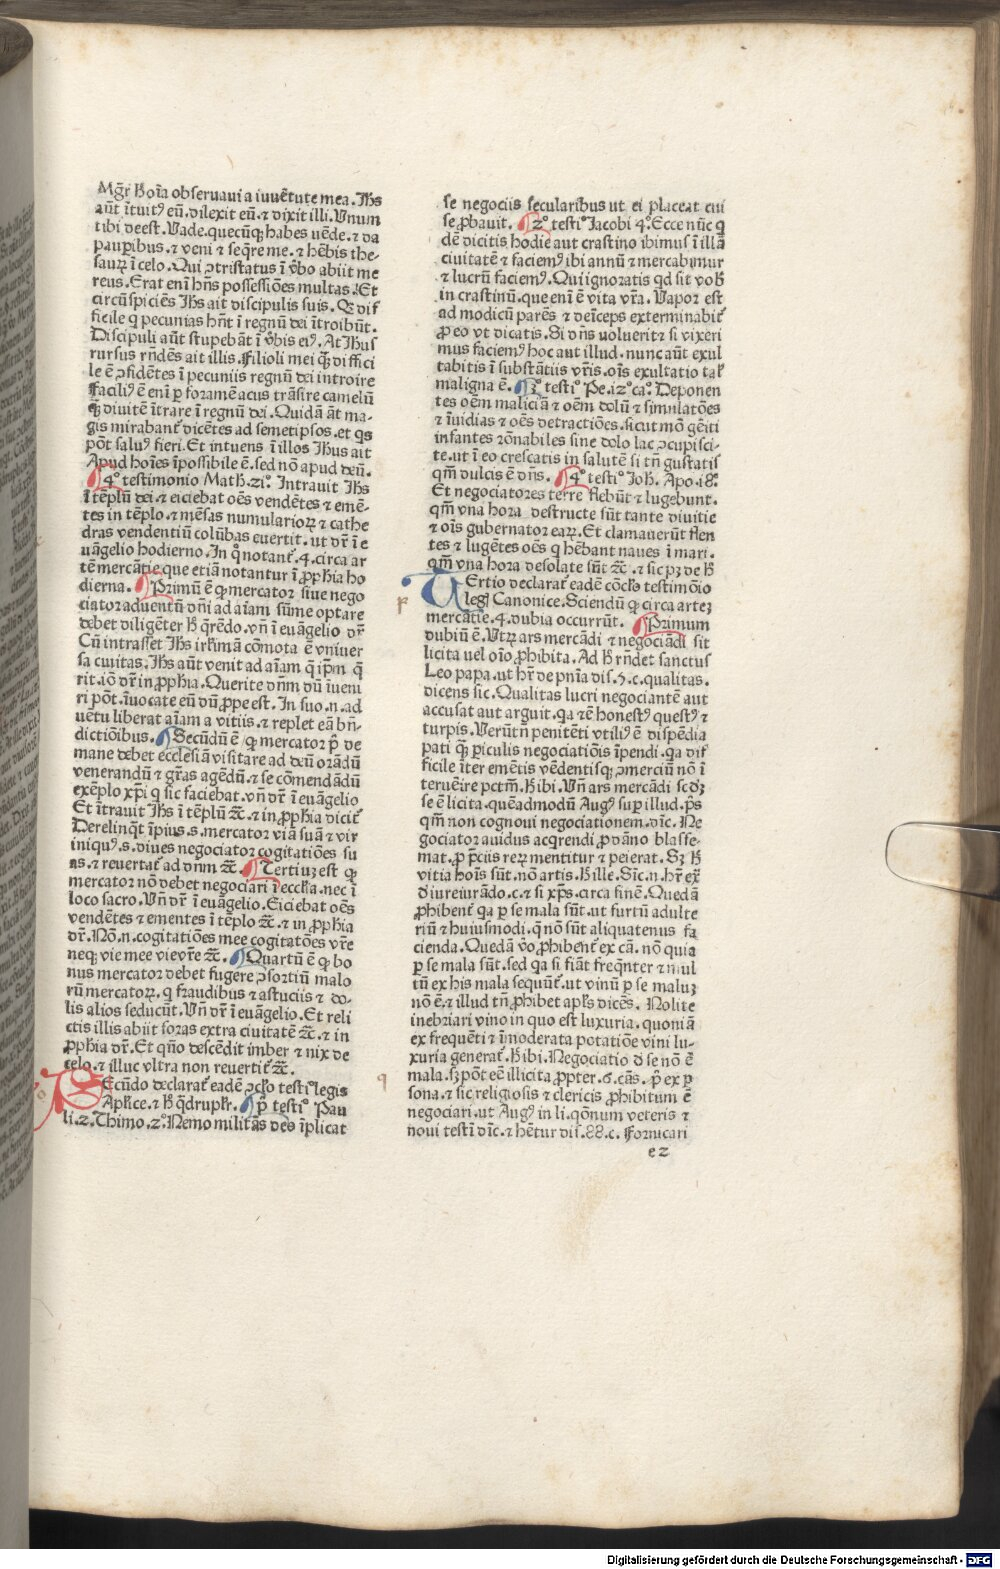 Mg̃r h̄ oĩa obseruaui a iuuẽtute mea. Jh̃s
aũt ĩtuitꝰ eũ. dilexit eũ. ⁊ dixit illi. Vnum
tibi deest. Vade. quecũqꝫ habes uẽde. ⁊ da
pauꝑibus. ⁊ veni ⁊ seq̃re me. ⁊ hẽbis the-
saurꝫ ĩ celo. Qui ꝯtristatus ĩ ṽbo abiit me
reus. Erat eni hñs possessiões multas. Et
circũspiciẽs Jh̃s ait discipulis suis. Q̃ dif
ficile q pecunias hñt ĩ regnũ dei ĩtroibũt.
Discipuli aũt stupebãt ĩ ṽbis eiꝰ. At Jhus
rursus rñdẽs ait illis. Filioli mei q̃ꝫ diffici
le ẽ ꝯfidẽtes ĩ pecuniis regnũ dei introire
Faciliꝰ ẽ eni ꝑ foramẽ acus trãsire camelũ
q̃ꝫ diuitẽ ĩtrare ĩ regnũ dei. Quidã ãt ma-
gis mirabant̃ dicẽtes ad semetipsos. et qs
põt saluꝰ fieri. Et intuens ĩ illos Jhus ait
Apud hoĩes ĩpossibile ẽ. sed nõ apud deũ.
4° testimonio Math. zi°. Intrauit Jh̃s
ĩ tẽplũ dei ⁊ eiciebat oẽs vendẽtes ⁊ emẽ-
tes in tẽplo. ⁊ mẽsas numulariorꝫ ⁊ cathe
dras vendentiũ colũbas euertit. ut dr̃ ĩ e
uãgelio hodierno. In q° notant̃. 4. circa ar
tẽ mercãtie que etiã notantur ĩ ꝓphia ho
dierna. Primũ ẽ ꝙ mercator siue nego
ciator aduentũ dñi ad aĩam sũme optare
debet diligẽter h̄ q̃rẽdo. vñ ĩ euãgelio dr̃
Cũ intrasset Jh̃s irl̃imã cõmota ẽ vniuer
sa ciuitas. Jh̃s aũt venit ad aĩam q̃ ip̃m q̃
rit. iõ dr̃ in ꝓphia. Querite dñm dũ ĩueni
ri põt. ĩuocate eũ dũ ꝓpe est. In suo .n. ad
uẽtu liberat aĩam a vitiis. ⁊ replet eã bñ-
dictiõibus. Secũdũ ẽ ꝙ mercator p̃ de
mane debet ecclesiã visitare ad deũ orãdũ
venerandũ ⁊ gr̃as agẽdũ. ⁊ se cõmendãdũ
exẽplo xp̃i q sic faciebat. vñ dr̃ ĩ euãgelio
Et ĩtrauit Jh̃s ĩ tẽplũ ⁊c̃. ⁊ in ꝓphia dicit̃
Derelinqt̃ ĩpius .s. mercator viã suã ⁊ vir
iniquꝰ .s. diues negociator cogitatiões su
as. ⁊ reuertat̃ ad dñm ⁊c̃. Tertiuꝫ est ꝙ
mercator nõ debet negociari ĩ ecclĩa. nec ĩ
loco sacro. Vñ dr̃ ĩ euãgelio. Eiciebat oẽs
vendẽtes ⁊ ementes ĩ tẽplo ⁊c̃. ⁊ in ꝓphia
dr̃. Nõ .n. cogitatiões mee cogitatões vr̃e
neqꝫ vie mee vie vr̃e ⁊c̃. Quartũ ẽ ꝙ bo
nus mercator debet fugere ꝯsortiũ malo
rũ mercatorꝫ. q fraudibus ⁊ astuciis ⁊ do-
lis alios seducũt. Vñ dr̃ ĩ euãgelio. Et reli
ctis illis abiit foras extra ciuitatẽ ⁊c̃. ⁊ in
ꝓphia dr̃. Et qñо descẽdit imber ⁊ nix de
celo. ⁊ illuc vltra non reuertit̃ ⁊c̃.
SEcũdo declarat̃ eadẽ ꝯclo testi° legis
Apl̃ice. ⁊ h̄ q̃drupl̃r. p̃ testi° Pau
li. z. Thimo. z° Nemo militãs deo ĩplicat
se negociis secularibus ut ei placeat cui
se ꝓbauit. z° testi° Jacobi 4°. Ecce nũc q
dẽ dicitis hodie aut crastino ibimus ĩ illã
ciuitatẽ ⁊ faciemꝰ ibi annũ ⁊ mercabimur
⁊ lucrũ faciemꝰ. Qui ignoratis qd sit vob̃
in crastinũ. que eni ẽ vita vr̃a. Vapor est
ad modicũ parẽs ⁊ deĩceps exterminabit̃
ꝓ eo ut dicatis. Si dñs uoluerit ⁊ si vixeri
mus faciemꝰ hoc aut illud. nunc aũt exul
tabitis ĩ substãtiis vr̃is. oĩs exultatio tal̃
maligna ẽ. 3° testi° Pe. iz° ca°. Deponen
tes oẽm maliciã ⁊ oẽm dolũ ⁊ simulatões
⁊ ĩuidias ⁊ oẽs detractiões. sicut mõ gẽiti
infantes rõnabiles sine dolo lac ꝯcupisci-
te. ut ĩ eo crescatis in salutẽ si tñ gustatis
qm̃ dulcis ẽ dñs. 4° testi° Joh. Apo. i8°
Et negociatores terre flebũt ⁊ lugebunt.
qm̃ vna hora destructe sũt tante diuitie
⁊ oĩs gubernator earꝫ. Et clamauerũt flen
tes ⁊ lugẽtes oẽs q hẽbant naues ĩ mari.
qm̃ vna hora desolate sũt ⁊c̃. ⁊ sic pꝫ de h̄
TErtio declarat̃ eadẽ cõclo testimõio
legꝫ Canonice. Sciendũ ꝙ circa arteꝫ
mercãtie. 4. dubia occurrũt. Primum
dubiũ ẽ. Vtrꝫ ars mercãdi ⁊ negociãdi sit
licita uel oĩo ꝓhibita. Ad h̄ rñdet sanctus
Leo papa. ut hr̃ de pnĩa dis. 5. c. qualitas.
dicens sic. Qualitas lucri negociantẽ aut
accusat aut arguit. qa ⁊ ẽ honestꝰ questꝰ ⁊
turpis. Verũtñ penitẽti vtiliꝰ ẽ dispẽdia
pati q̃ꝫ ꝑiculis negociatiõis ĩpendi. qa dif
ficile ĩter emẽtis vẽdentisqꝫ ꝯmerciũ nõ ĩ
teruẽire pctm̃. H̄ ibi. Vñ ars mercãdi scdꝫ
se ẽ licita. quẽadmodũ Augꝰ suꝑ illud. p̃s
qm̃ non cognoui negociationem. dic̃. Ne
gociator auidus acqrendi ꝓ dãno blasfe-
mat. ꝓ p̃ciis rerꝫ mentitur ⁊ peierat. Sꝫ h̄
vitia hoĩs sũt. nõ artis. H̄ ille. Sic̃ .n. hr̃ ex̃
d̃ iureiurãdo. c. ⁊ si xp̃s. circa finẽ. Quedã
ꝓhibent̃ qa ꝑ se mala sũt. ut furtũ adulte
riũ ⁊ huiusmodi. q̃ nõ sũt aliquatenus fa
cienda. Quedã ṽo ꝓhibent̃ ex cã. nõ quia
ꝑ se mala sũt. sed qa si fiãt freqñter ⁊ mul
tũ ex his mala sequũt̃. ut vinũ ꝑ se maluꝫ
nõ ẽ. ⁊ illud tñ ꝓhibet apl̃s dicẽs. Nolite
inebriari vino in quo est luxuria. quoniã
ex frequẽti ⁊ ĩmoderata potatiõe vini lu-
xuria generat̃. H̄ ibi. Negociatio d̃ se nõ ẽ
mala. sꝫ põt eẽ illicita ꝓpter. 6. cãs. p̃ ex ꝑ
sona. ⁊ sic religiosis ⁊ clericis ꝓhibitum ẽ
negociari. ut Augꝰ in li. qõnum veteris ⁊
noui testi dic̃. ⁊ hẽtur dis. 88. c. Fornicari
e z
Digitalisierung gefördert durch die Deutsche Forschungsgemeinschaft - DFG